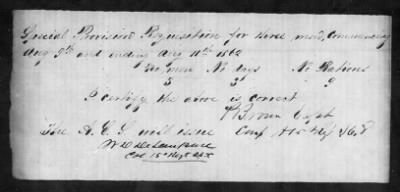 Special Provision Requisition for three men, Commencing
Aug 9th and ending Aug 11th 1862
No men No days No Rations
3 3 9
I certify the above is correct
Brown Capt
The A. C. S. will issue Comp
Col 15th Regt